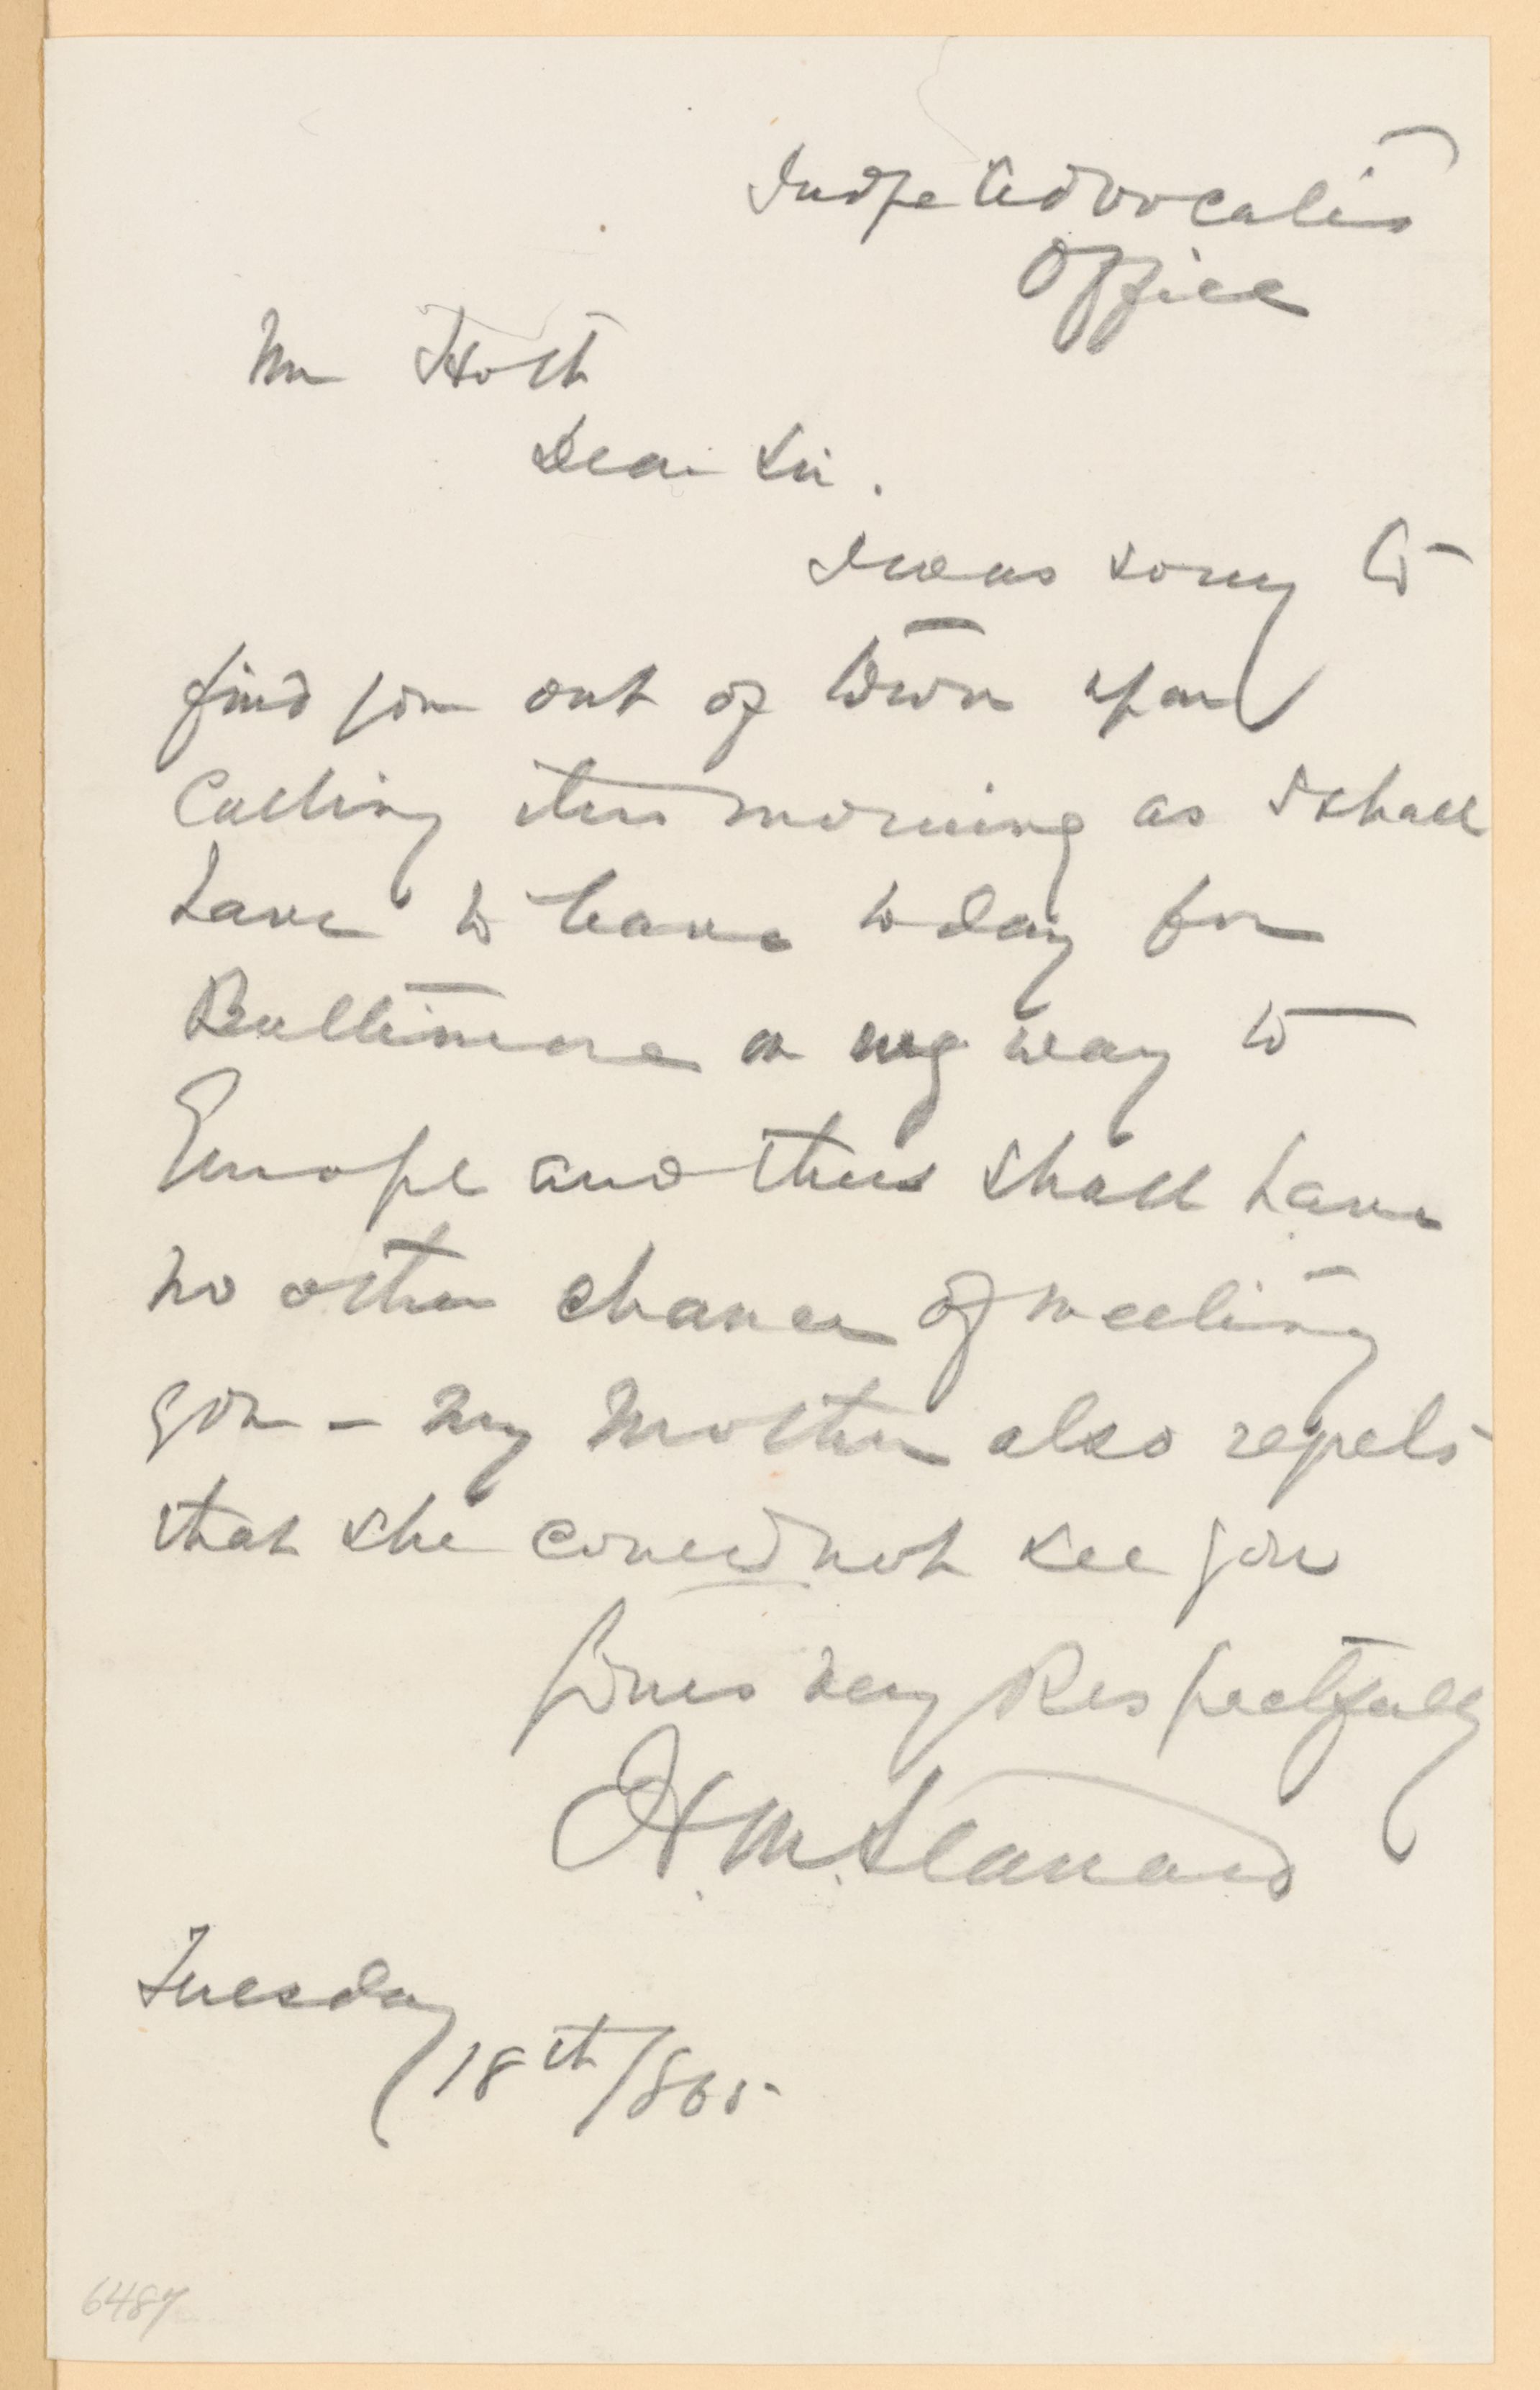 Judge Advocates
Office
Mr Holt
Dear Sir.
I was sorry to
find you out of town upon
Calling this morning as I shall
have to leave today for
Baltimore on my way to
Europe and thus shall have
no other chance of meeting
you - My Mother also regrets
that she could not see you
Yours very Respectfully
H. M.
Tuesday
18th/865
6487